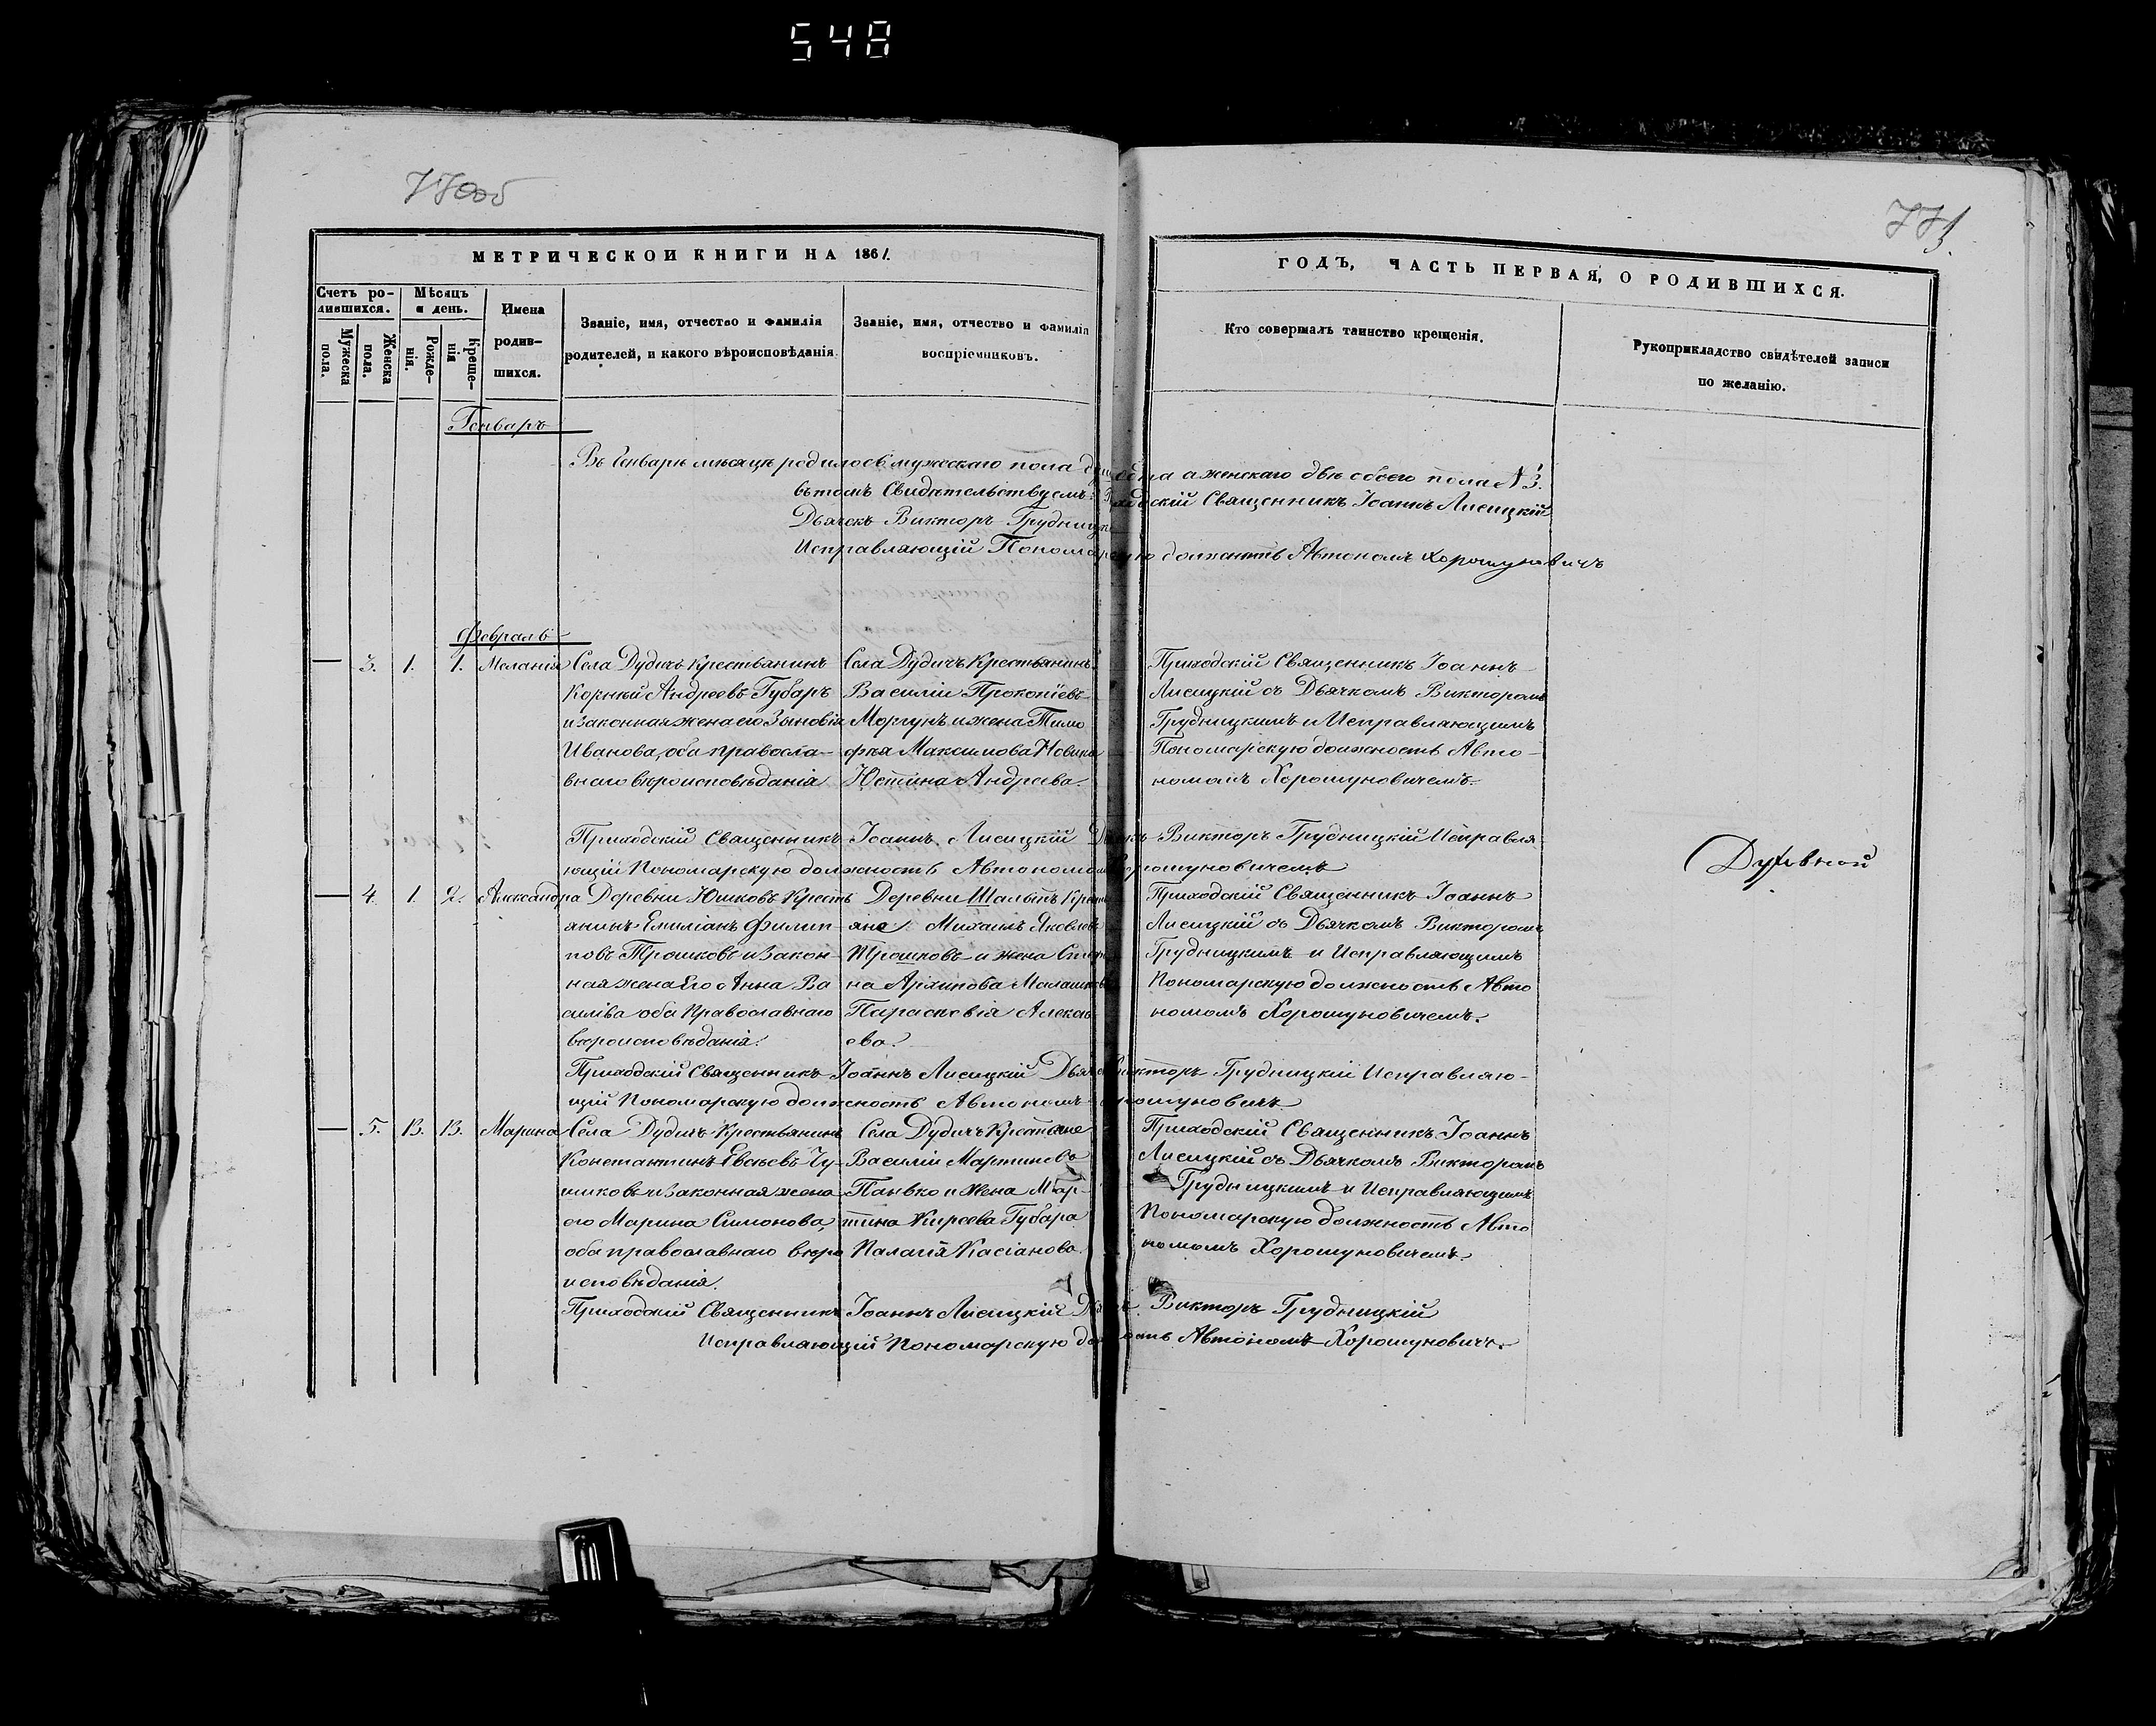 548
770об
771
МЕТРИЧЕСКОЙ КНИГИ НА 1861.
ГОДЪ, ЧАСТЬ ПЕРВАЯ, О РОДИВШИХСЯ.
Счетъ ро-
дившихся.
Мужеска
пола.
Женска
пола.
Мѣсяцъ
и день.
Рожде-
нія.
Креще-
нія
Имена
родив-
шихся.
Званіе, имя, отчество и фамилія
родителей, и какого вѣроисповѣданія.
Званіе, имя, отчество и фамилія
воспріемниковъ.
Кто совершалъ таинство крещенія.
Рукоприкладство свидѣтелей записи
по желанію.
Генварь
Въ Генварѣ мѣсяцѣ родилось мужескаго пола одна а женскаго двѣ обоего пола № 3.
въ томъ Свидѣтельствуемъ: Священникъ Іоаннъ Лисицкій
Дьячекъ Викторъ Грудницкій
Исправляющій Пономарскую должность Автономъ Хорошуновичъ
Февраль
— 3. 1. 1. Меланія
Села Дудичъ крестьянинъ
Корнѣй Андреевъ Губарь
и законная жена его Зиновія
Иванова, оба правосла-
внаго вѣроисповѣданія
Села Дудичъ Крестьянинъ
Василій Прокопіевъ
Моргунъ и жена Тимо
фея Максимова Новика
Юстина Андреева.
Приходскій Священникъ Іоаннъ
Лисицкій съ Дьячкомъ Викторомъ
Грудницкимъ и Исправляющимъ
Пономарскую должность Авто-
номомъ Хорошуновичемъ.
Приходскій Священникъ Іоаннъ Лисицкій Викторъ Грудницкій Исправля
ющій Пономарскую должность
Духовной
— 4. 1. 2. Александра
Деревни Юшковъ Кресть
янинъ Емиліанъ Филип-
повъ Трошковъ и закон-
ная жена Его Анна Ва
силіва оба Православнаго
вѣроисповѣданія.
Деревни
яне Михаилъ Яковлевъ
Трошковъ и жена
на Архипова
Параскевія Алексѣ
ева.
Приходскій Священникъ Іоаннъ
Лисицкій съ Дьячкомъ Викторомъ
Грудницкимъ и Исправляющимъ
Пономарскую должность Авто
номомъ Хорошуновичемъ.
Приходскій Священникъ Іоаннъ Лисицкій Викторъ Грудницкій Исправляю-
щій Пономарскую должность Автономъ Хорошуновичъ
— 5. 13. 13. Марина
Села Дудичъ Крестьянинъ
Константинъ Евсѣевъ Чу-
шковъ и законная жена
его Марина Симонова,
оба православнаго вѣро
исповѣданія.
Села Дудичъ Крестьяне
Василій Мартиновъ
Панько и Жена Мар-
тина Кирѣева Губара
Палагія Касіанова.
Приходскій Священникъ Іоаннъ
Лисицкій съ Дьячкомъ Викторомъ
Грудницкимъ и Исправляющимъ
Пономарскую должность Авто
номомъ Хорошуновичемъ.
Приходскій Священникъ Іоаннъ Лисицкій Викторъ Грудницкій
Исправляющій Пономарскую должность Автономъ Хорошуновичъ.